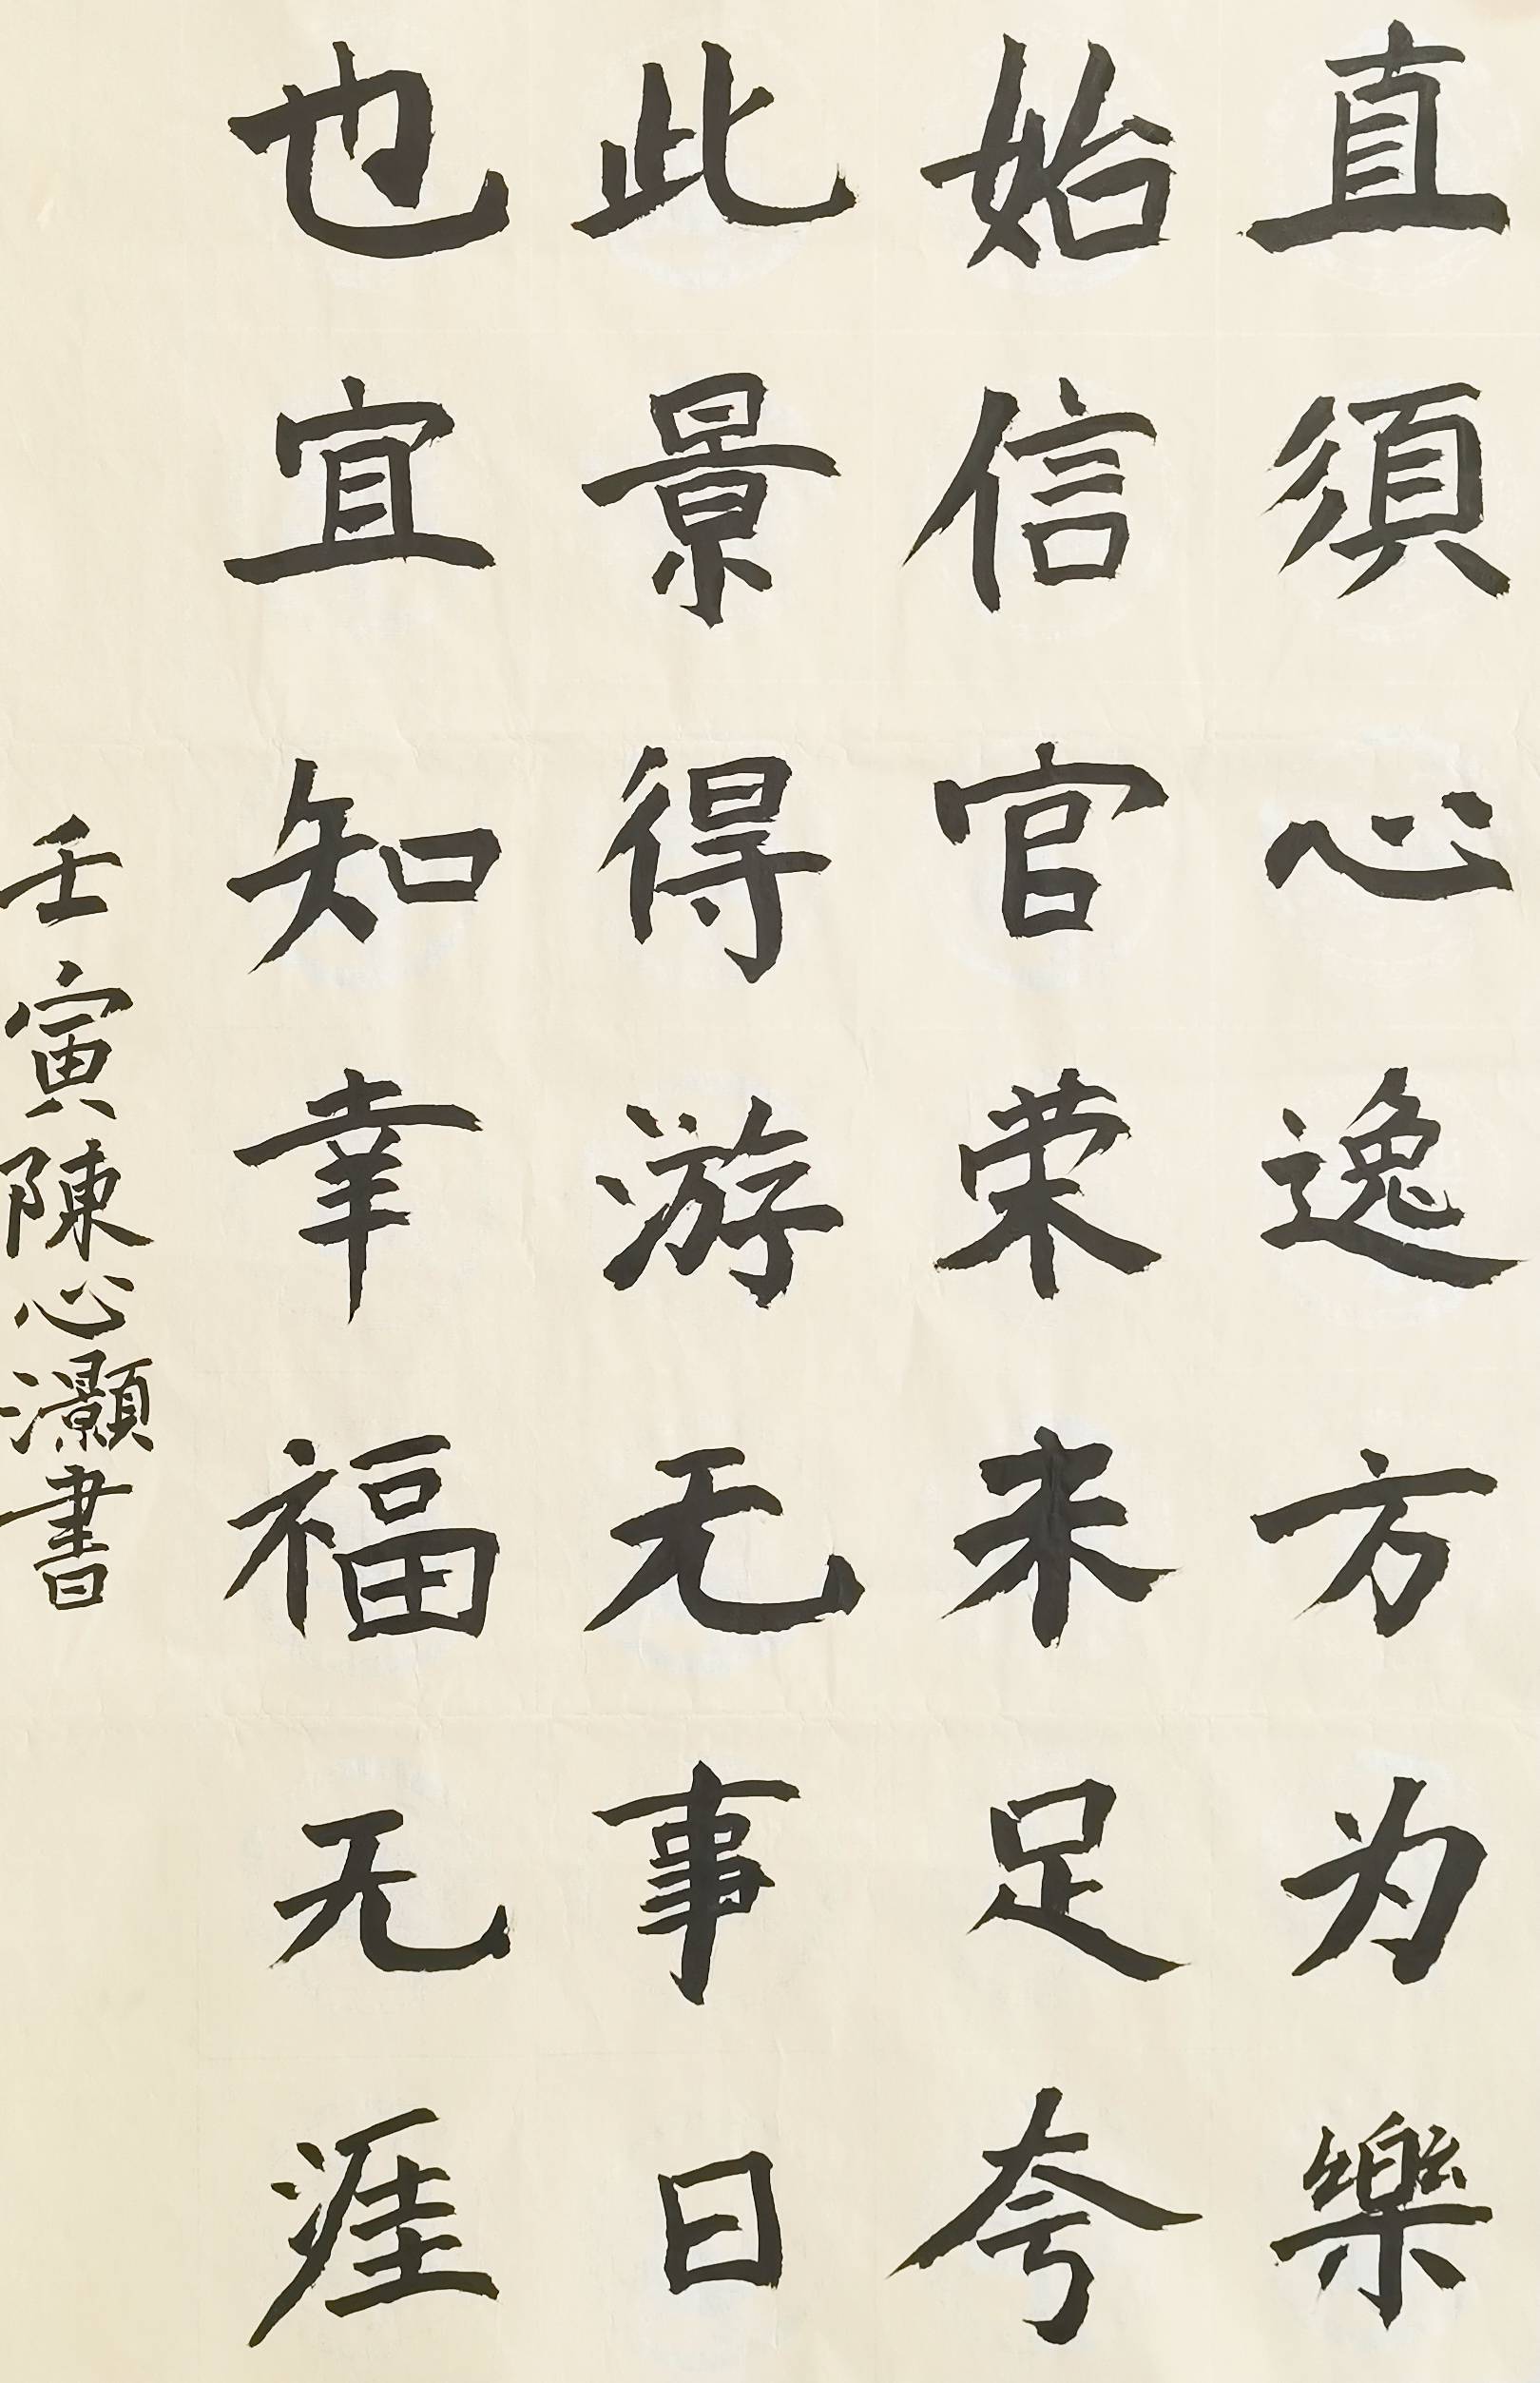 直須心逸方为樂
始信官荣未足夸
此景得游无事日
也宜知幸福无涯
壬寅陳心灏書